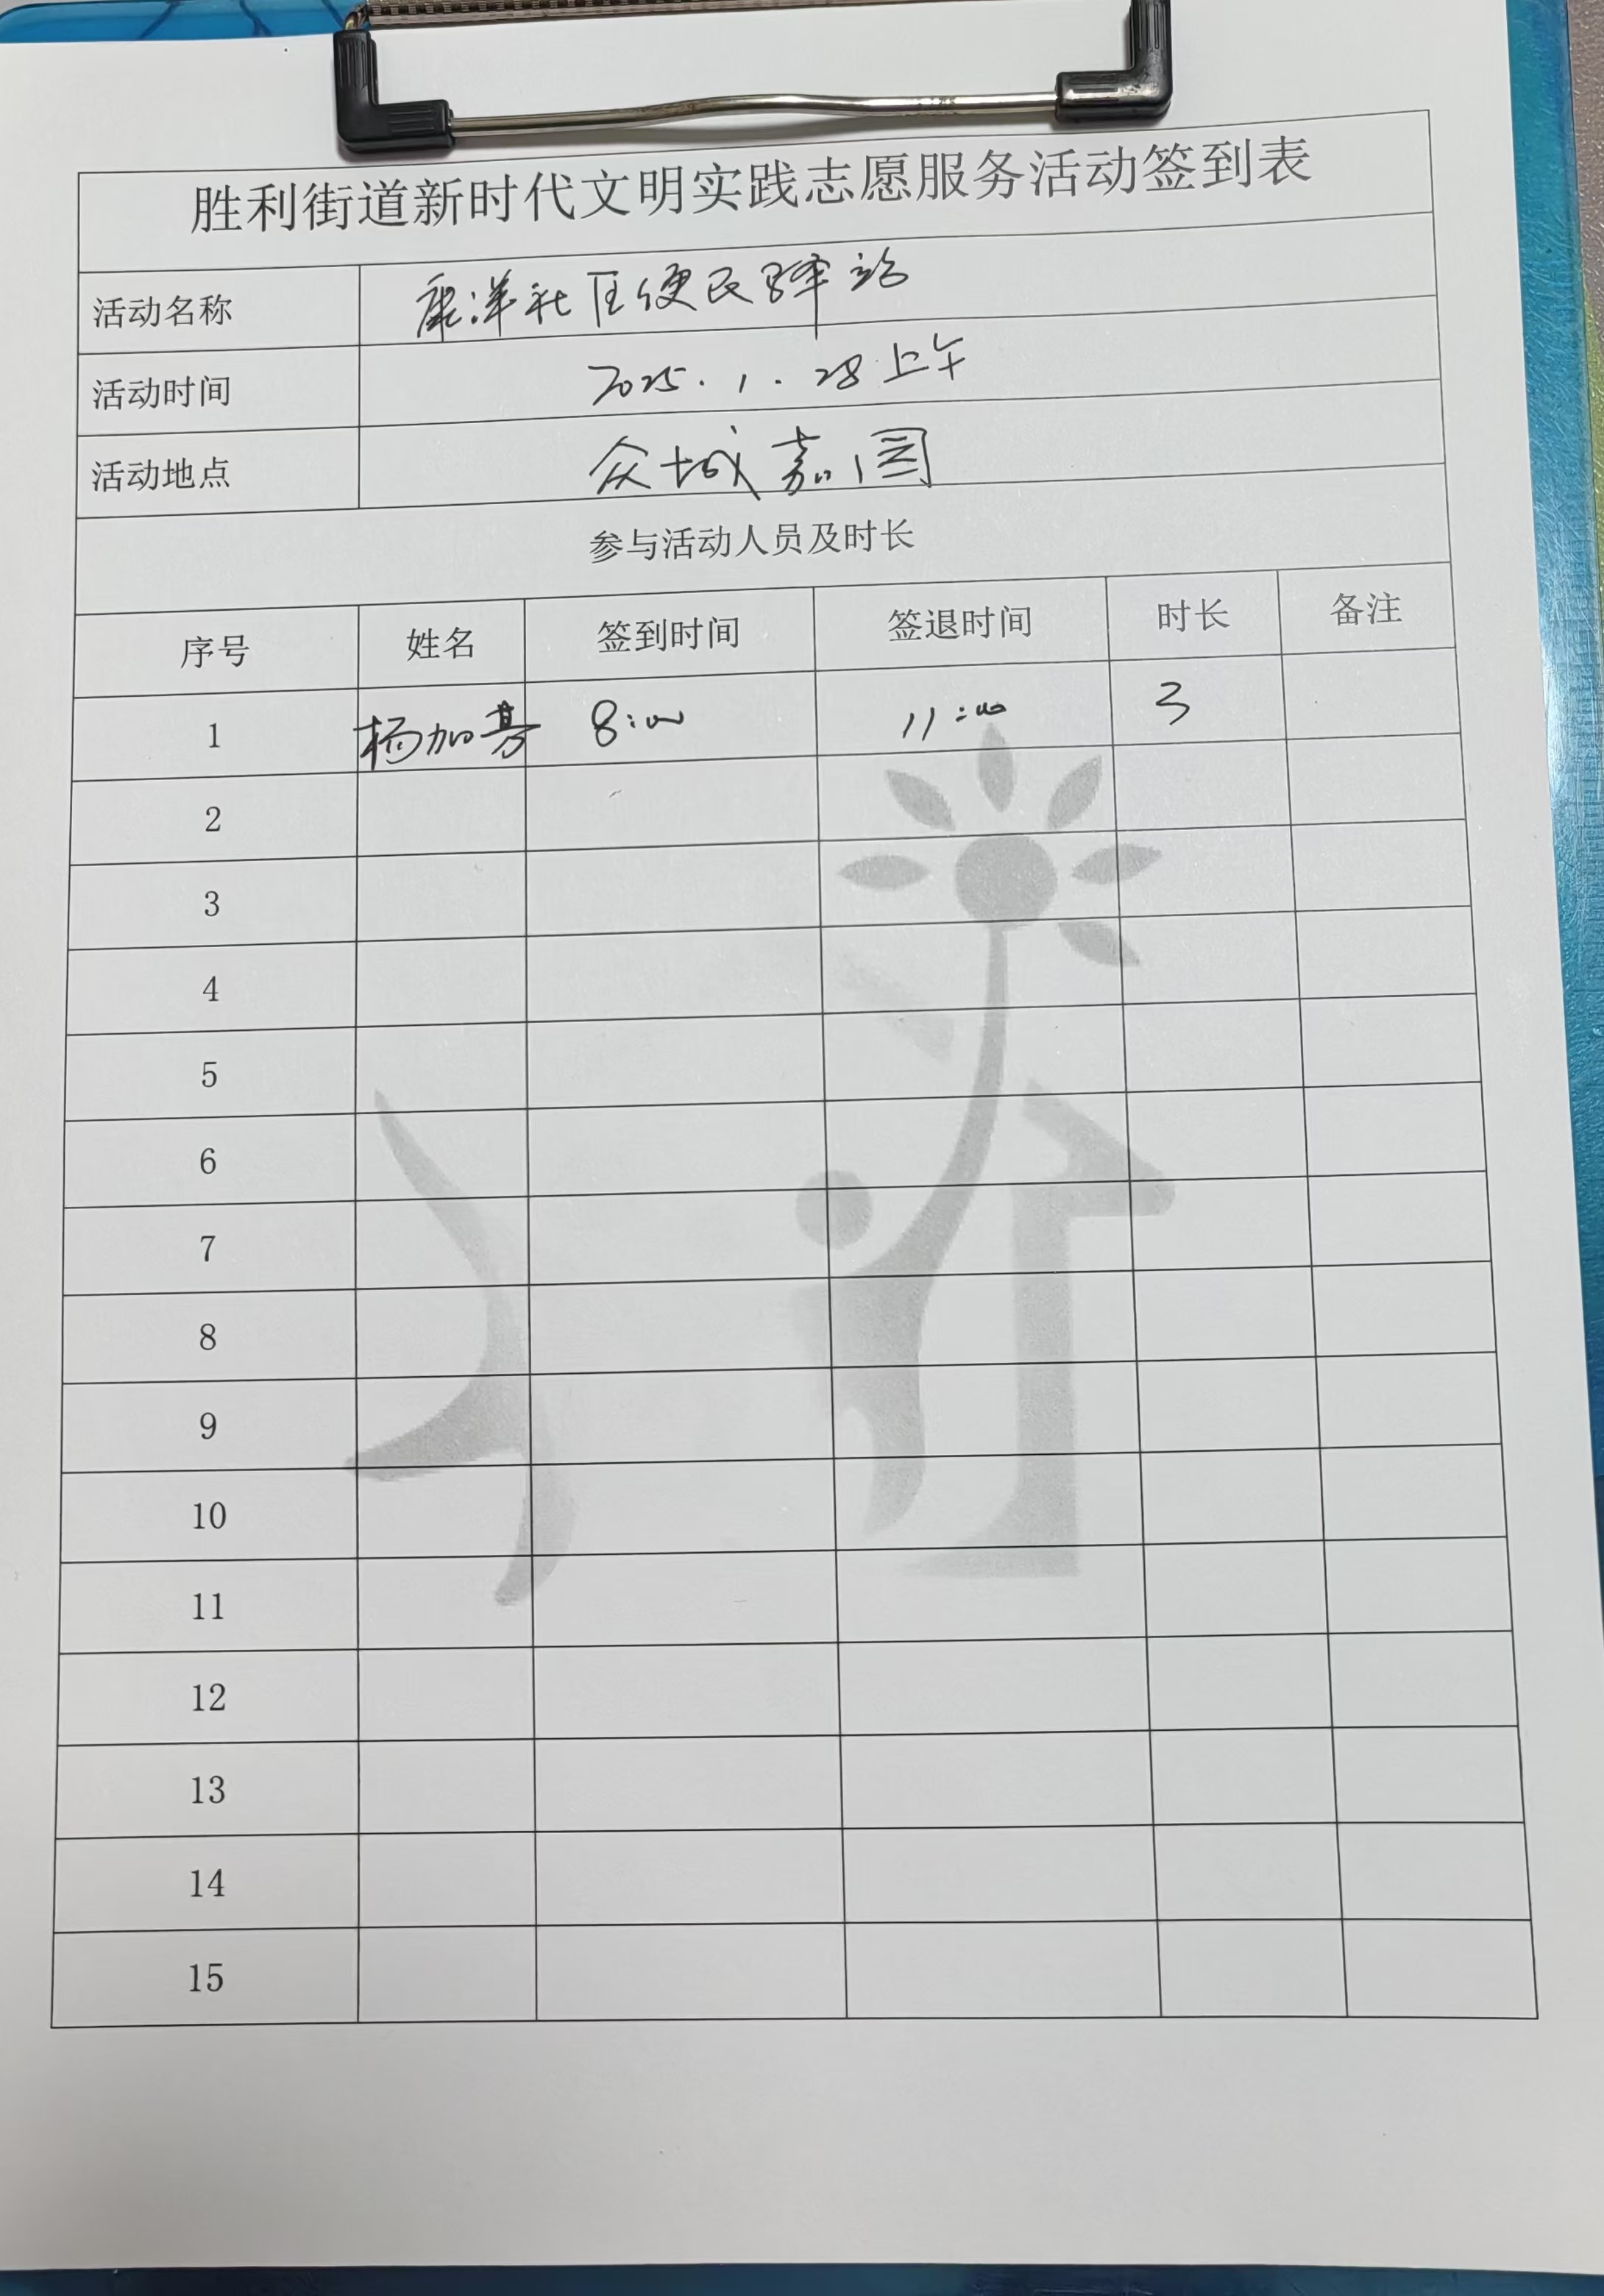 胜利街道新时代文明实践志愿服务活动签到表
活动名称 康洋社区便民驿站
活动时间 2025.1.28上午
活动地点 众城嘉园
参与活动人员及时长
序号 姓名 签到时间 签退时间 时长 备注
1 杨加 8:00 11:00 3
2
3
4
5
6
7
8
9
10
11
12
13
14
15